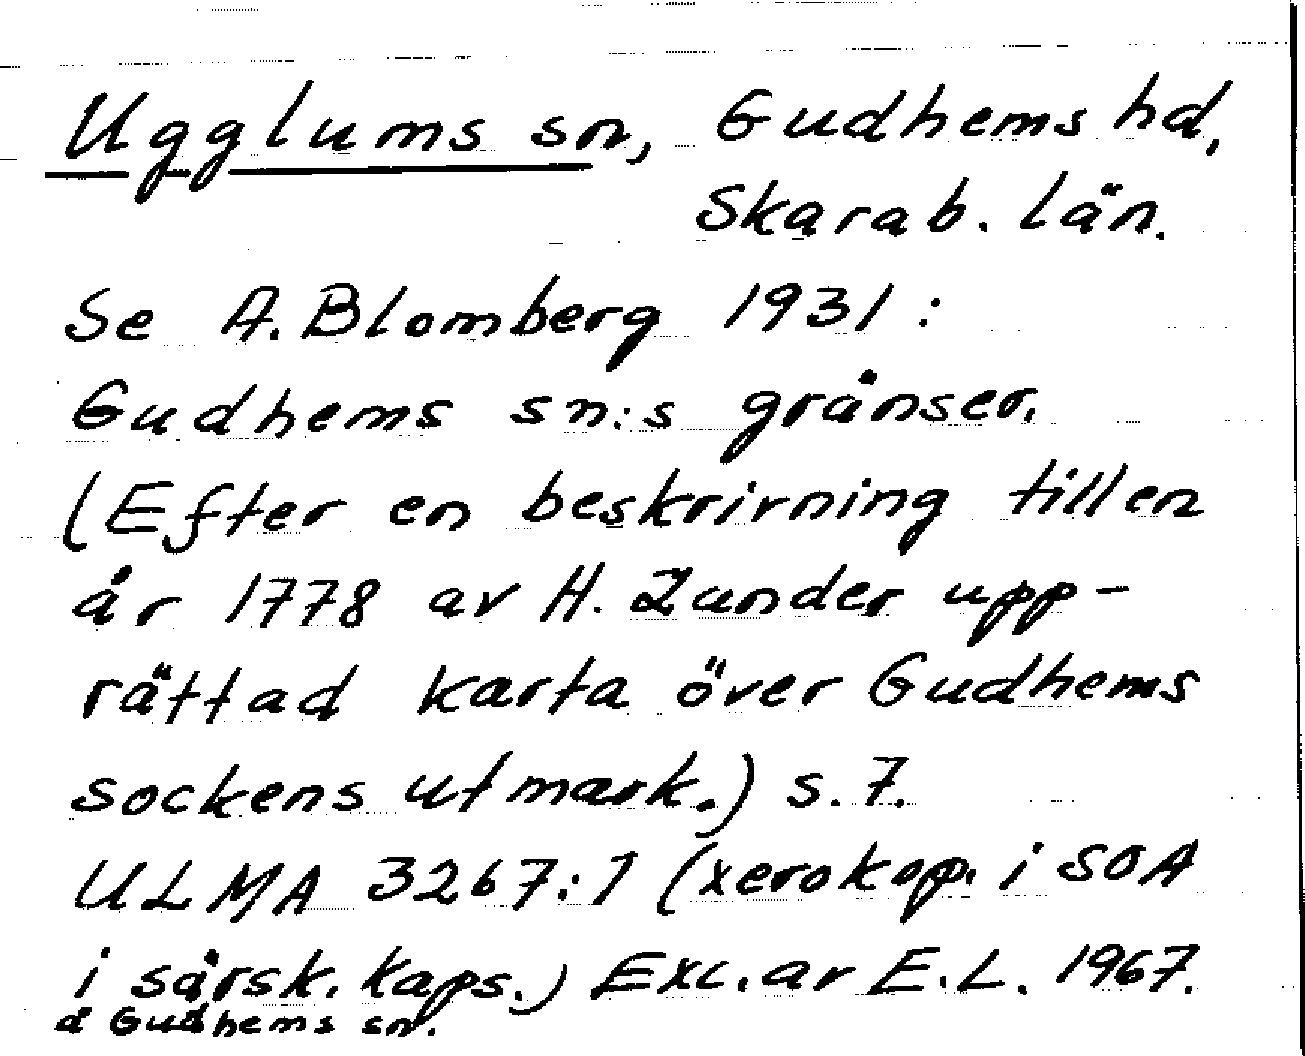 Ugglums sn, Gudhems hd,
Skarab. län.
Se A. Blomberg 1931:
Gudhems sn:s gränser.
(Efter en beskrivning till en
år 1778 av H. Zander upp-
rättad karta över Gudhems
sockens utmark.) s. 7.
ULMA 3267:1 (xerokop. i SOA
i särsk. kaps.) Exc. av E.L. 1967.
å Gudhems sn.